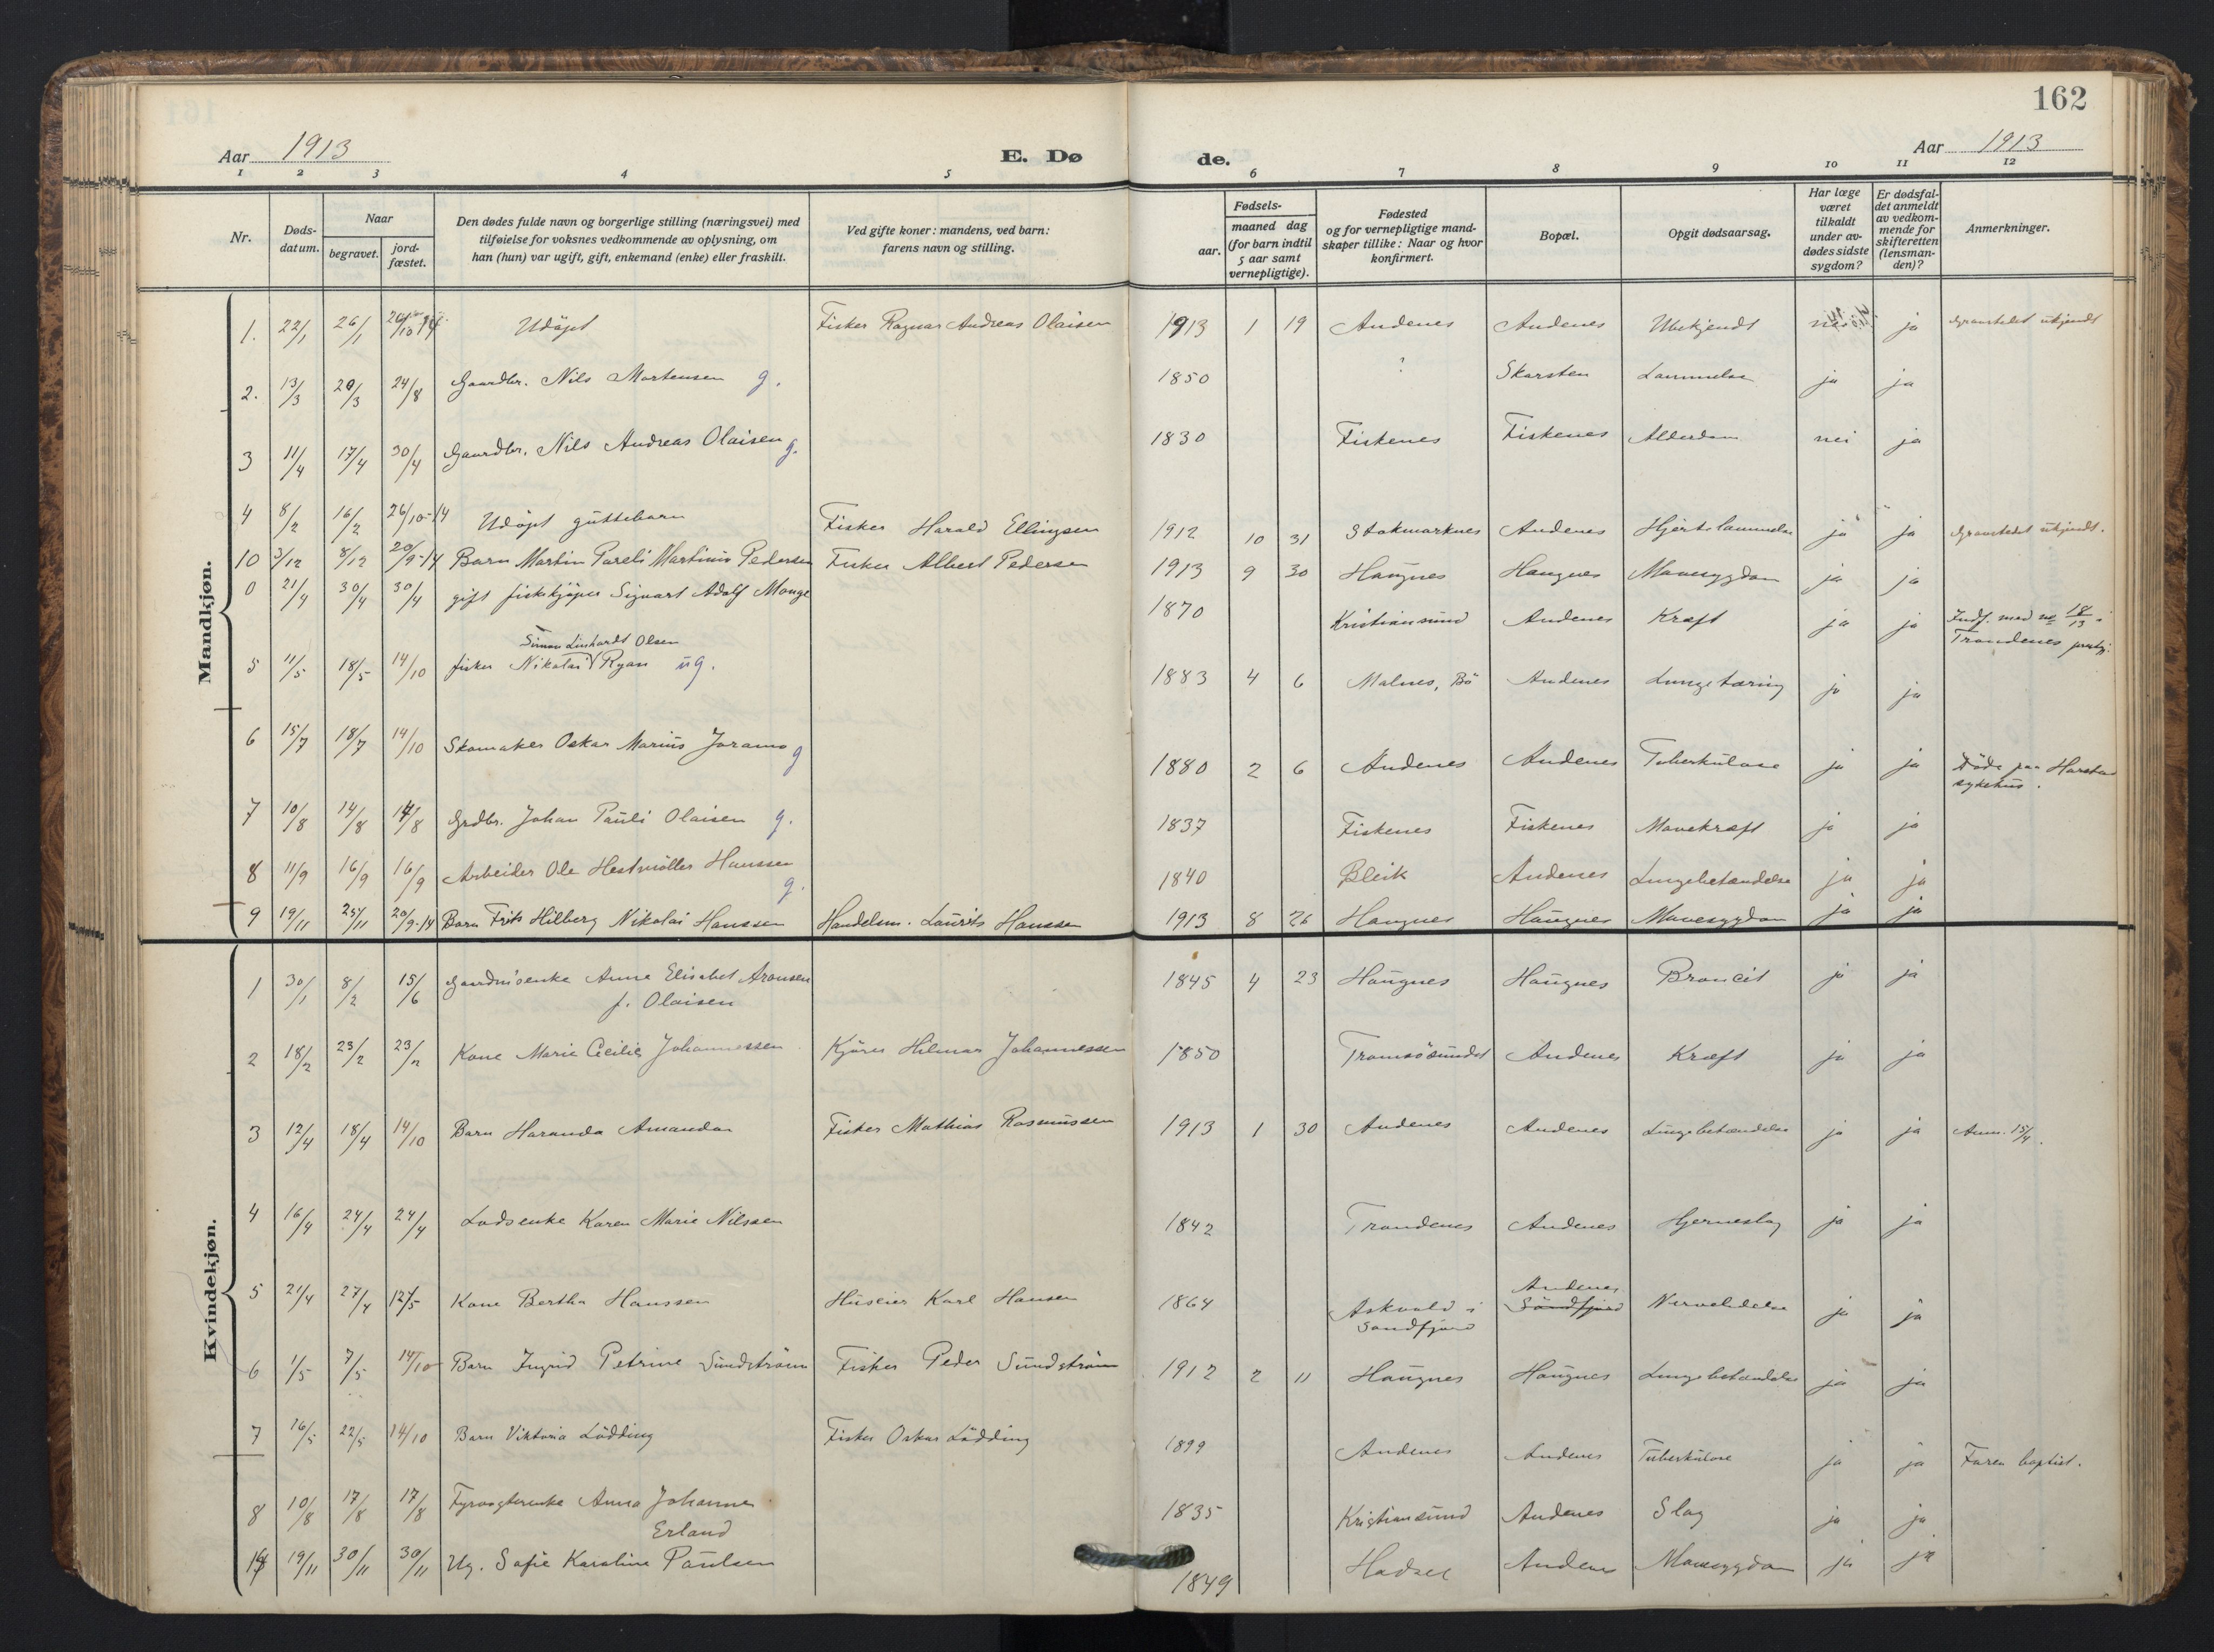 162
Aar 1913
E. Dø
de.
Aar 1913
1 2 3 4 5 6 7 8 9 10 11 12
Nr.
Døds-
datum.
Naar
begravet.
jord-
fæstet.
Den dødes fulde navn og borgerlige stilling (næringsvei) med
tilføielse for voksnes vedkommende av oplysning, om
han (hun) var ugift, gift, enkemand (enke) eller fraskilt.
Ved gifte koner: mandens, ved barn:
farens navn og stilling.
Fødsels-
aar.
maaned dag
(for barn indtil
5 aar samt
vernepligtige).
Fødested
og for vernepligtige mand-
skaper tillike: Naar og hvor
konfirmert.
Bopæl.
Opgit dødsaarsag.
Har læge
været
tilkaldt
under av-
dødes sidste
sygdom?
Er dødsfal-
det anmeldt
av vedkom-
mende for
skifteretten
(lensman-
den)?
Anmerkninger.
Mandkjøn.
1. 22/1 26/1 Udöpt Fisker Ragnar Andreas Olaisen 1913 1 19 Andenes Andenes Ubekjendt nei ja Gravstedet ukjendt
2. 13/3 20/3 24/8 Gaardbr. Nils Mortensen g. 1850 ? Skarsten Lammelse ja ja
3 11/4 17/4 30/4 Gaardbr. Nils Andreas Olaisen g. 1830 Fiskenes Fiskenes Alderdom nei ja
4 8/2 16/2 26/10-14 Udöpt guttebarn Fisker Harald Ellingsen 1912 10 31 Stokmarknes Andenes Hjertelammelse ja ja Gravstedet ukjendt.
10 3/12 8/12 20/9-14 Barn Martin Pareli Martinus Pedersen Fisker Albert Pedersen 1913 9 30 Haugnes Haugnes Mavesygdom ja ja
0 21/4 30/4 30/4 gift fiskekjøper Sigvart Adolf Monge 1870 Kristiansund Andenes Kræft ja ja Indf. med no 18/13 i
Trondenes prestgj.
Simon Linhardt Olsen
5 11/5 18/5 14/10 fisker Nikolai Ryan ug. 1883 4 6 Malnes, Bö Andenes Lungetæring ja ja
6 15/7 18/7 14/10 Skomaker Oskar Marius Joramo g 1880 2 6 Andenes Andenes Tuberkulose ja ja Döde paa Harstad
sykehus.
7 10/8 14/8 14/8 Grdbr. Johan Pauli Olaisen g. 1837 Fiskenes Fiskenes Mavekræft ja ja
8 11/9 16/9 16/9 Arbeider Ole Hestmöller Hanssen g. 1840 Bleik Andenes Lungebetændelse ja ja
9 19/11 25/11 20/9-14 Barn Frits Hilberg Nikolai Hanssen Handelsm. Laurits Hanssen 1913 8 26 Haugnes Haugnes Mavesygdom ja ja
Kvindekjøn.
1 30/1 8/2 15/6 Gaardmsenke Anne Elisabet Aronsen 1845 4 23 Haugnes Haugnes Broncit ja ja
f. Olaisen
2 18/2 23/2 23/2 Kone Marie Cecilie Johannessen Kjörer Hilmar Johannessen 1850 Tromsösundet Andenes Kræft ja ja
3 12/4 18/4 14/10 Barn Haranda Amanda Fisker Mathias Rasmussen 1913 1 30 Andenes Andenes Lungebetændelse ja ja Anm. 15/4.
4 16/4 24/4 24/4 Lodsenke Karen Marie Nilssen 1842 Trondenes Andenes Hjerneslag ja ja
5 21/4 27/4 12/5 Kone Bertha Hanssen Huseier Karl Hansen 1864 Askvold i
Sondfjord
Andenes
Söndfjord Nervelidelse ja ja
6 1/5 7/5 14/10 Barn Ingrid Petrine Sundström Fisker Peder Sundström 1912 2 11 Haugnes Haugnes Lungebetændelse ja ja
7 16/5 22/5 14/10 Barn Viktoria Lödding Fisker Oskar Lödding 1899 Andenes Andenes Tuberkulose ja ja Faren baptist.
8 10/8 17/8 17/8 Fyrvogterenke Anna Johanne 1835 Kristiansund Andenes Slag ja ja
Erland
19/11 30/11 30/11 Ug. Sofie Karoline Paulsen 1849 Hadsel Andenes Mavesygdom ja ja